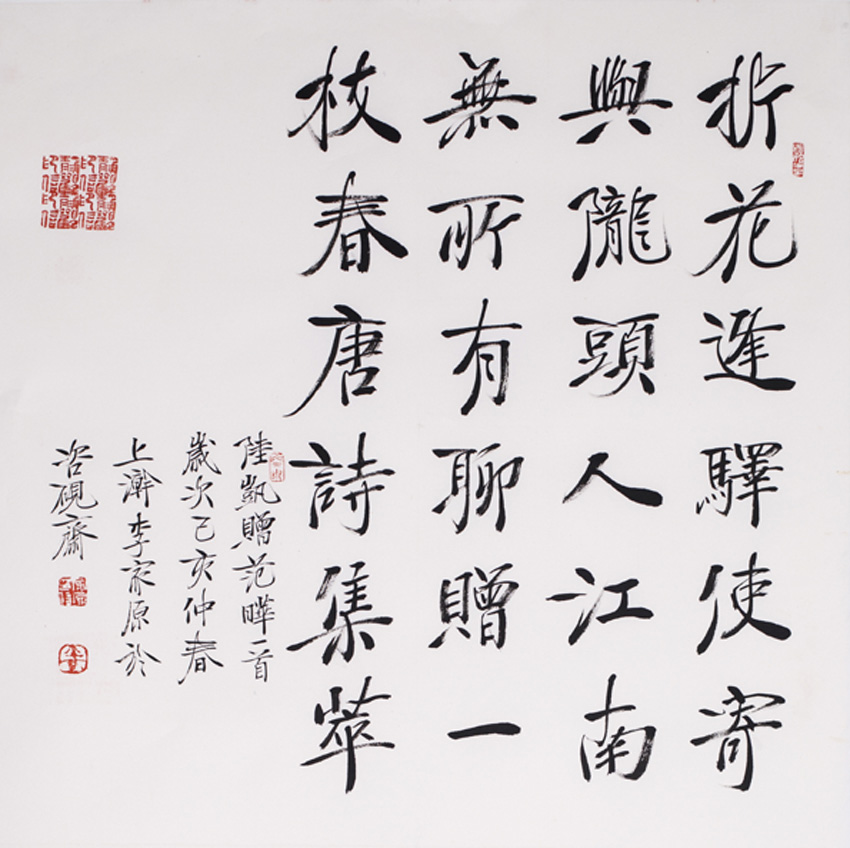 折花逢驛使寄
與隴頭人江南
無所有聊贈一
枝春唐詩集萃
陸凱贈范曄一首
歲次己亥仲春
上澣李家原於
硯齋